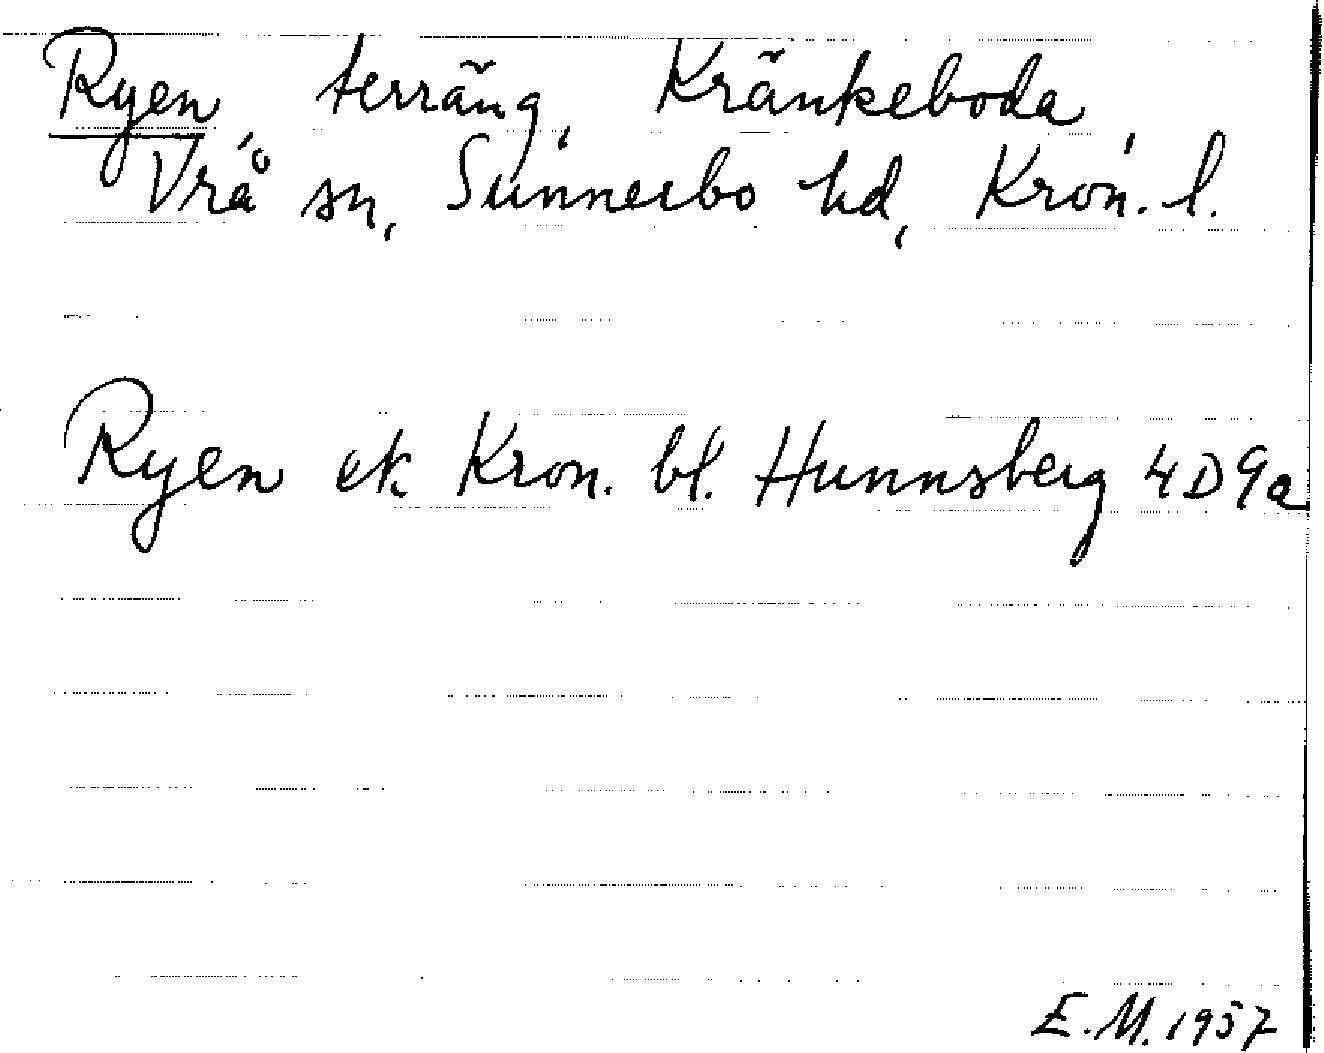 Ryen, terräng, Kränkeboda,
Vrå sn, Sunnerbo hd, Kron. l.
Ryen ek Kron. bl. Hunnsberg 4D9a
E.M. 1957